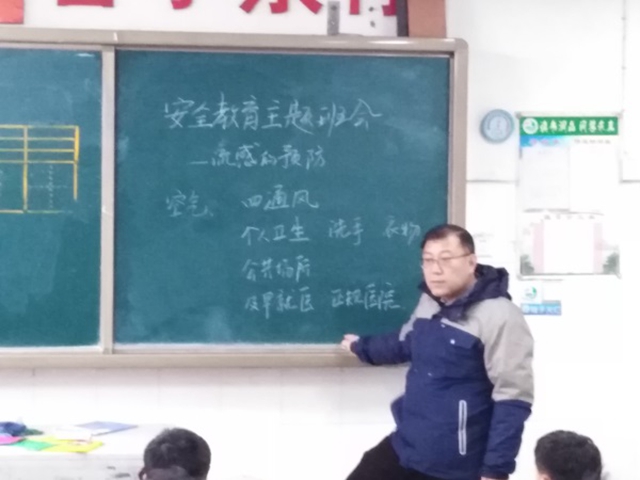 安全教育主题班会
—流感的预防
空气、 四通风
个人卫生 洗手 衣物
公共场所
及早就医 正规医院